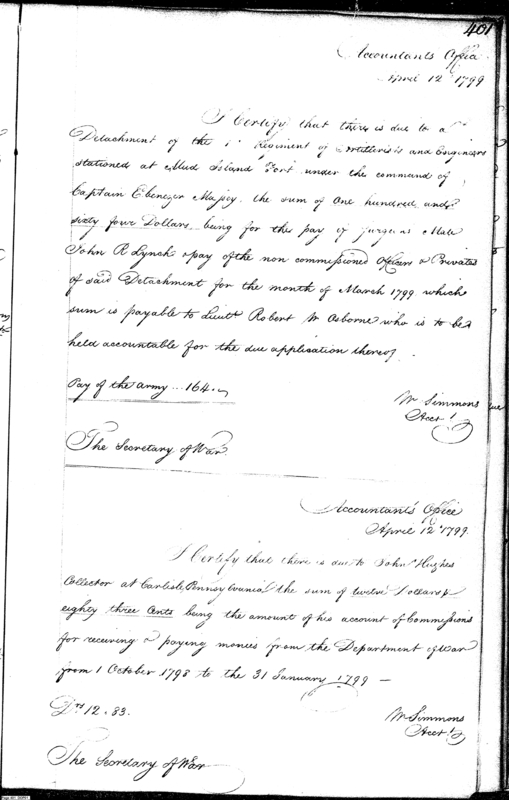 401
Accountants Office
April 12th 1799
I Certify that there is due to a
Detachment of the 1st Regiment of Artillerists and Engineers
stationed at Mud Island Fort, under the command of
Captain Ebenezer Massey, the sum of One hundred and
sixty four Dollars, being for the pay of Surgeons Mate
John R Lynch & pay of the non commissioned Officers & Privates
of said Detachment for the month of March 1799 which
sum is payable to Lieut. Robert W Osborne who is to be
held accountable for the due application thereof.
Pay of the army ... 164.
Wm Simmons
Acct.
The Secretary of War.
Accountant's Office
April 12th 1799.
I Certify that there is due to John Hughes
Collector at Carlisle, Pennsylvania the sum of twelve Dollars &
eighty three Cents being the amount of his account of Commissions
for receiving & paying monies from the Department of War
from 1 October 1798 to the 31 January 1799 —
Drs 12.83.
Wm Simmons
Acct.
The Secretary of War